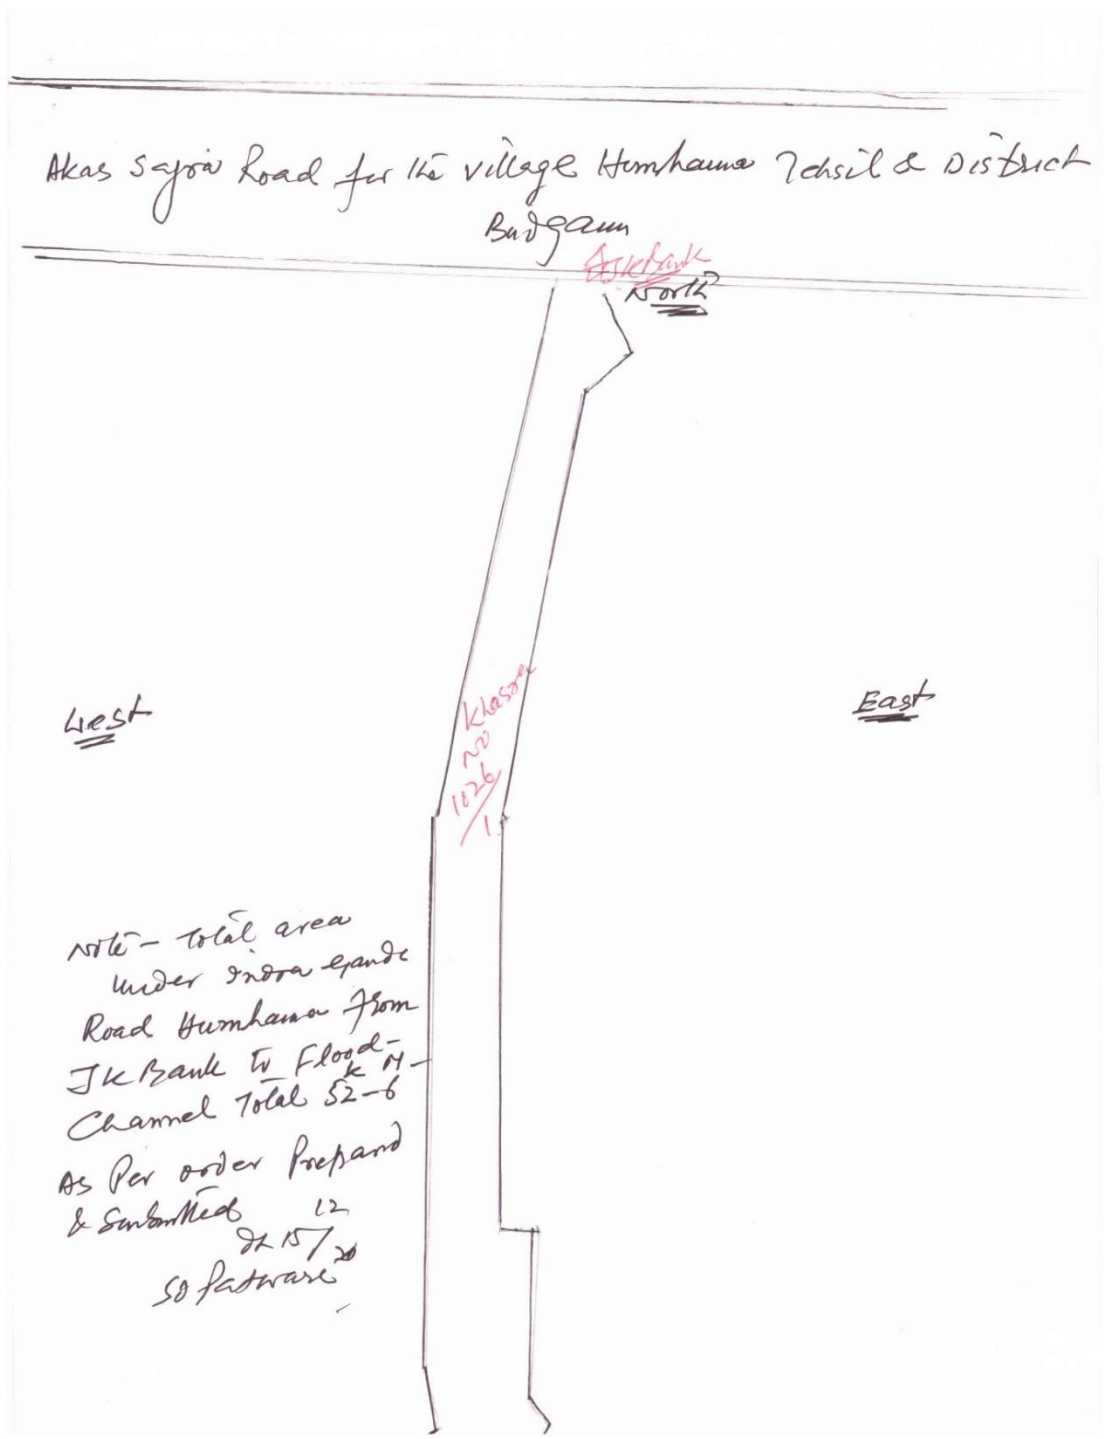 Akas Sajra Road for the village Humhama Tehsil & District
Budgam
JK Bank
North
West
East
Khasra
No
1026/1
Note - total area
under Indra gande
Road Humhama from
JK Bank to Flood-
K M
Channel Total 52-6
As Per order Prepared
& Submitted
12
15/20
Sd Patwari